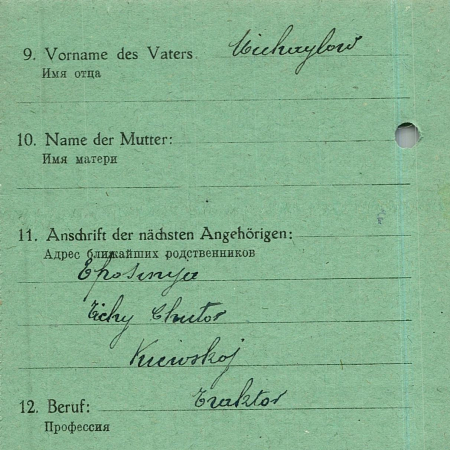 9. Vorname des Vaters Michaylow
Имя отца
10. Name der Mutter:
Имя матери
11. Anschrift der nächsten Angehörigen:
Адрес ближайших родственников
Tichy Chutor
Kiewskoj
12. Beruf: Traktor
Профессия